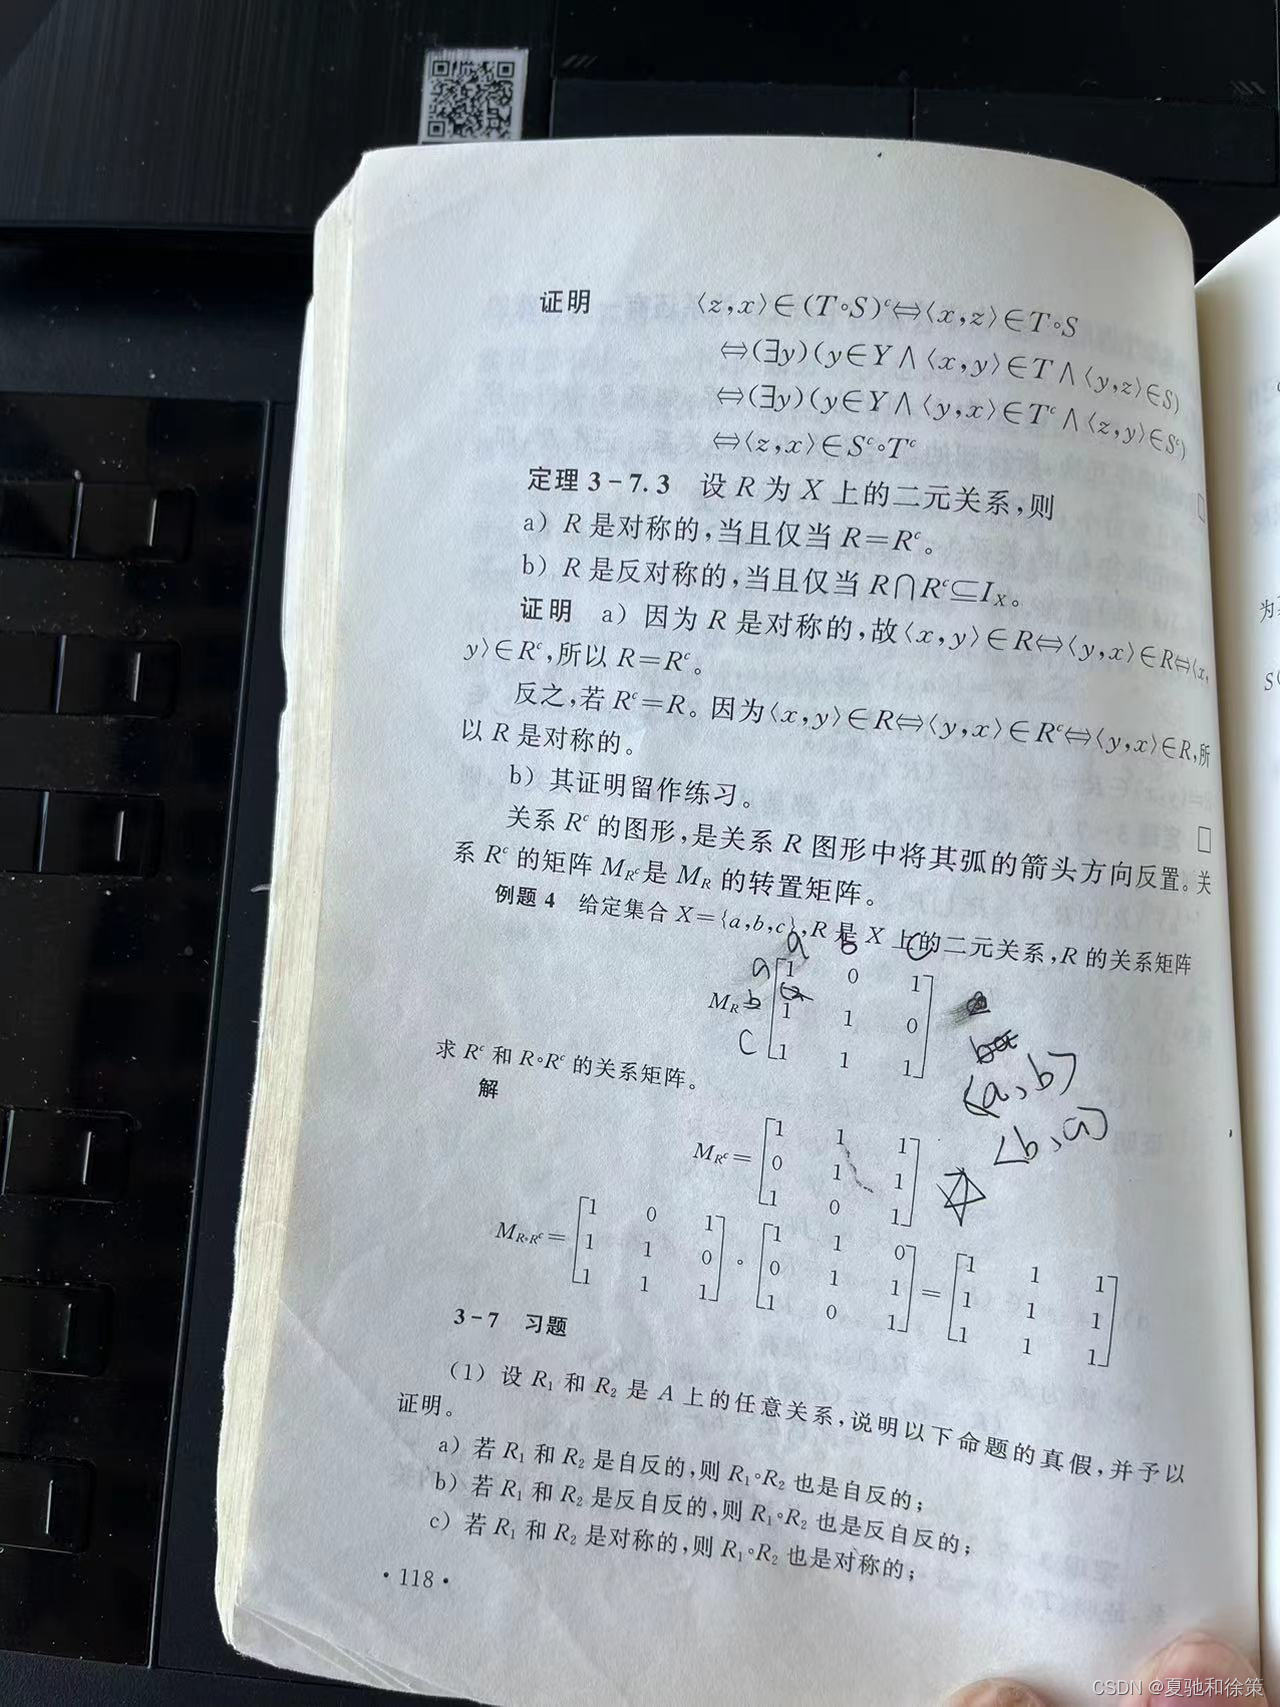 证明 〈z,x〉∈(T∘S)ᶜ⇔〈x,z〉∈T∘S
⇔(∃y)(y∈Y∧〈x,y〉∈T∧〈y,z〉∈S)
⇔(∃y)(y∈Y∧〈y,x〉∈Tᶜ∧〈z,y〉∈Sᶜ)
⇔〈z,x〉∈Sᶜ∘Tᶜ
□
定理 3-7.3 设 R 为 X 上的二元关系,则
a) R 是对称的,当且仅当 R=Rᶜ。
b) R 是反对称的,当且仅当 R∩Rᶜ⊆I_X。
证明 a) 因为 R 是对称的,故〈x,y〉∈R⇔〈y,x〉∈R⇔〈x,
y〉∈Rᶜ,所以 R=Rᶜ。
反之,若 Rᶜ=R。因为〈x,y〉∈R⇔〈y,x〉∈Rᶜ⇔〈y,x〉∈R,所
以 R 是对称的。
b) 其证明留作练习。
□
关系 Rᶜ 的图形,是关系 R 图形中将其弧的箭头方向反置。关
系 Rᶜ 的矩阵 M_Rᶜ是 M_R 的转置矩阵。
例题 4 给定集合 X={a,b,c},R 是 X 上的二元关系,R 的关系矩阵
a b c
a 1 0 1
M_R= b 1 1 0
c 1 1 1
〈a,b〉
〈b,a〉
求 Rᶜ 和 R∘Rᶜ 的关系矩阵。
解
1 1 1
M_Rᶜ= 0 1 1
1 0 1
1 0 1 1 1 0 1 1 1
M_R∘Rᶜ= 1 1 0 ∘ 0 1 1 = 1 1 1
1 1 1 1 0 1 1 1 1
3-7 习题
(1) 设 R₁ 和 R₂ 是 A 上的任意关系,说明以下命题的真假,并予以
证明。
a) 若 R₁ 和 R₂ 是自反的,则 R₁∘R₂ 也是自反的;
b) 若 R₁ 和 R₂ 是反自反的,则 R₁∘R₂ 也是反自反的;
c) 若 R₁ 和 R₂ 是对称的,则 R₁∘R₂ 也是对称的;
·118·
为
S
CSDN @夏驰和徐策